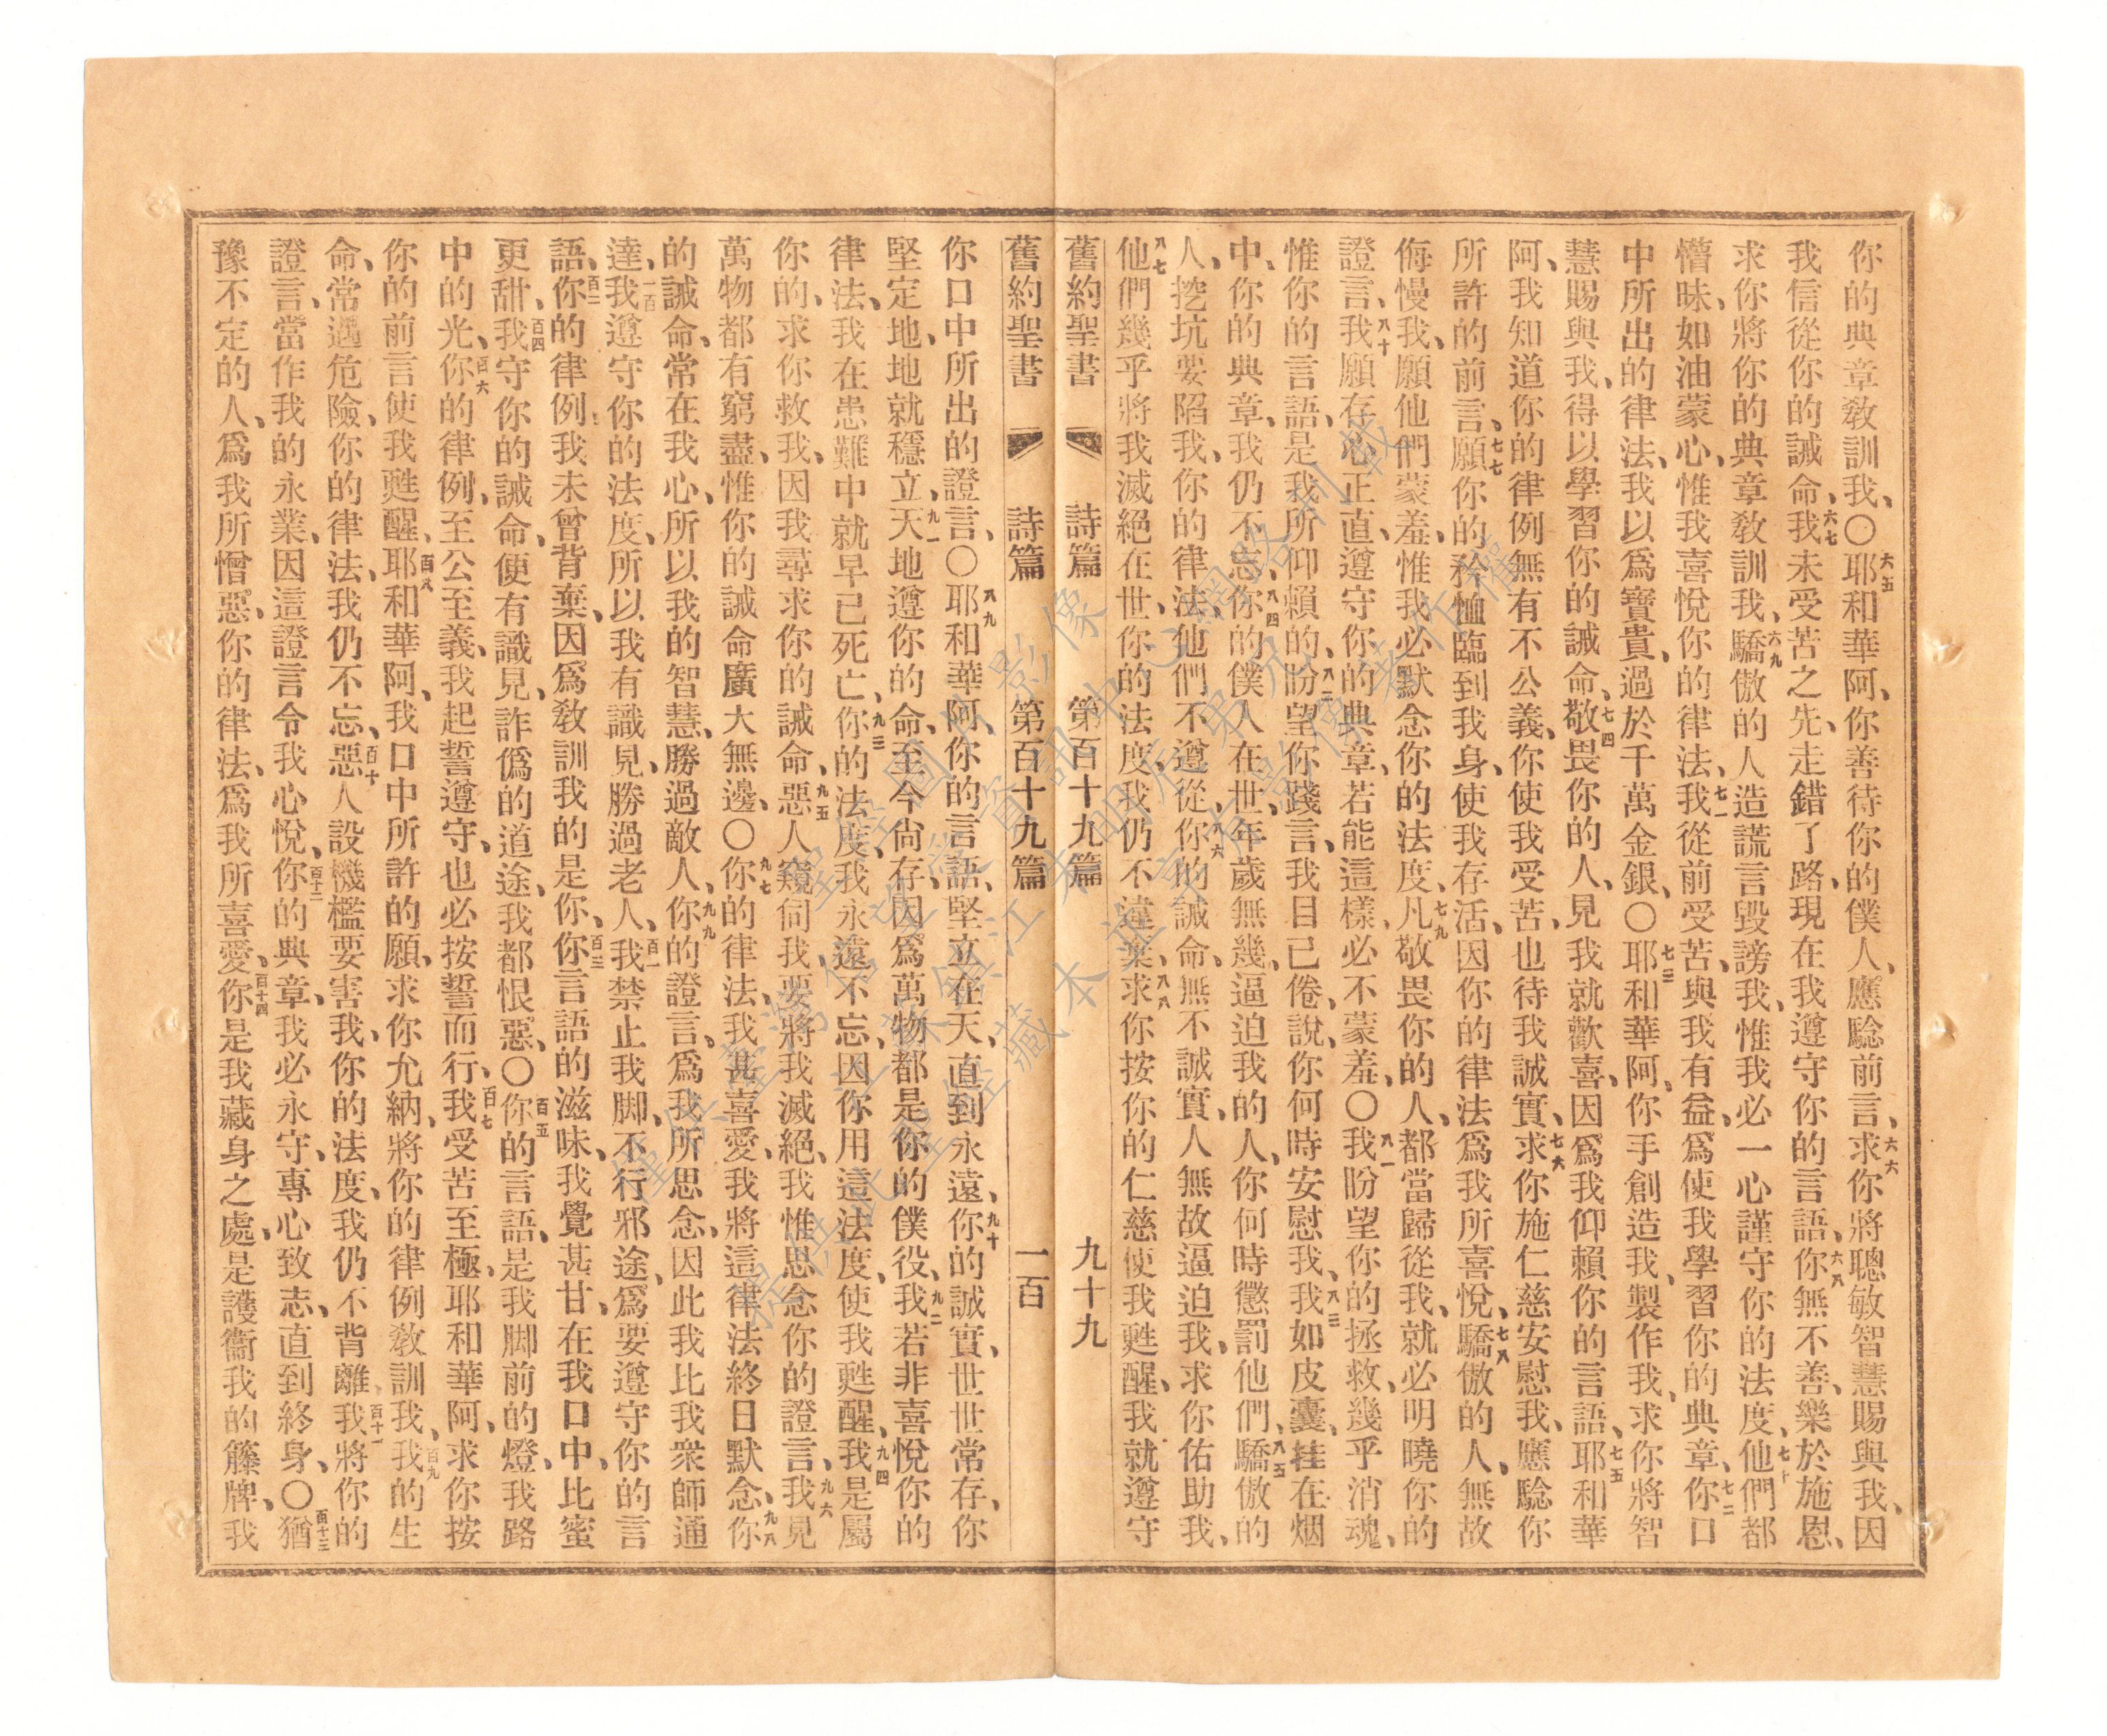 你的典章教訓我、〇六五耶和華阿、你善待你的僕人、應驗前言、六六求你將聰敏智慧賜與我、因
我信從你的誡命、六七我未受苦之先、走錯了路、現在我遵守你的言語、六八你無不善、樂於施恩、
求你將你的典章教訓我、六九驕傲的人造謊言毀謗我、惟我必一心謹守你的法度、七十他們都
懵昧、如油蒙心、惟我喜悅你的律法、七一我從前受苦、與我有益、爲使我學習你的典章、七二你口
中所出的律法、我以爲寶貴、過於千萬金銀、〇七三耶和華阿、你手創造我、製作我、求你將智
慧賜與我、得以學習你的誡命、七四敬畏你的人、見我就歡喜、因爲我仰賴你的言語、七五耶和華
阿、我知道你的律例無有不公義、你使我受苦、也待我誠實、七六求你施仁慈安慰我、應驗你
所許的前言、七七願你的矜恤臨到我身、使我存活、因你的律法爲我所喜悅、七八驕傲的人、無故
侮慢我、願他們蒙羞、惟我必默念你的法度、七九凡敬畏你的人、都當歸從我、就必明曉你的
證言、八十我願存心正直、遵守你的典章、若能這樣、必不蒙羞、〇八一我盼望你的拯救、幾乎消魂、
惟你的言語、是我所仰賴的、八二盼望你踐言、我目已倦、說、你何時安慰我、八三我如皮囊、挂在烟
中、你的典章、我仍不忘、八四你的僕人在世、年歲無幾、逼迫我的人、你何時懲罰他們、八五驕傲的
人、挖坑要陷我、你的律法、他們不遵從、八六你的誡命、無不誠實、人無故逼迫我、求你佑助我、
八七他們幾乎將我滅絕在世、你的法度、我仍不違棄、八八求你按你的仁慈使我甦醒、我就遵守
舊約聖書 詩篇 第百十九篇 九十九
舊約聖書 詩篇 第百十九篇 一百
你口中所出的證言、〇八九耶和華阿、你的言語、堅立在天、直到永遠、九十你的誠實、世世常存、你
堅定地、地就穩立、九一天地遵你的命、至今尙存、因爲萬物都是你的僕役、九二我若非喜悅你的
律法、我在患難中就早已死亡、九三你的法度、我永遠不忘、因你用這法度、使我甦醒、九四我是屬
你的、求你救我、因我尋求你的誡命、九五惡人窺伺我、要將我滅絕、我惟思念你的證言、九六我見
萬物都有窮盡、惟你的誡命廣大無邊、〇九七你的律法、我甚喜愛、我將這律法終日默念、九八你
的誡命、常在我心、所以我的智慧、勝過敵人、九九你的證言、爲我所思念、因此我比我衆師通
達、一百我遵守你的法度、所以我有識見、勝過老人、百一我禁止我脚、不行邪途、爲要遵守你的言
語、百二你的律例、我未曾背棄、因爲敎訓我的是你、百三你言語的滋味、我覺甚甘、在我口中、比蜜
更甜、百四我守你的誡命、便有識見、詐僞的道途、我都恨惡、〇百五你的言語、是我脚前的燈、我路
中的光、百六你的律例、至公至義、我起誓遵守、也必按誓而行、百七我受苦至極、耶和華阿、求你按
你的前言使我甦醒、百八耶和華阿、我口中所許的願、求你允納、將你的律例敎訓我、百九我的生
命、常遇危險、你的律法、我仍不忘、百十惡人設機檻要害我、你的法度、我仍不背離、百十一我將你的
證言、當作我的永業、因這證言令我心悅、百十二你的典章、我必永守、專心致志、直到終身、〇百十三猶
豫不定的人、爲我所憎惡、你的律法、爲我所喜愛、百十四你是我藏身之處、是護衞我的籐牌、我